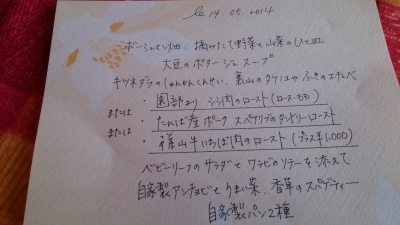 le 14.05.2014
ボーシュマン畑 摘みたて野菜と山菜のひと皿
大豆のポタージュスープ
キツネダラの しゅんかんくんせい、裏山のタケノコやふきのエチュベ
・園部より シシ肉のロースト(ロース・モモ)
または
・たんば産ポーク スペアリブのタンドリーロースト
または
・篠山牛いちぼ肉のロースト(プラス¥1,000)
ベビーリーフのサラダとワラビのソテーを添えて
自家製アンチョビとうまい菜、香草のスパゲティー
自家製パン2種